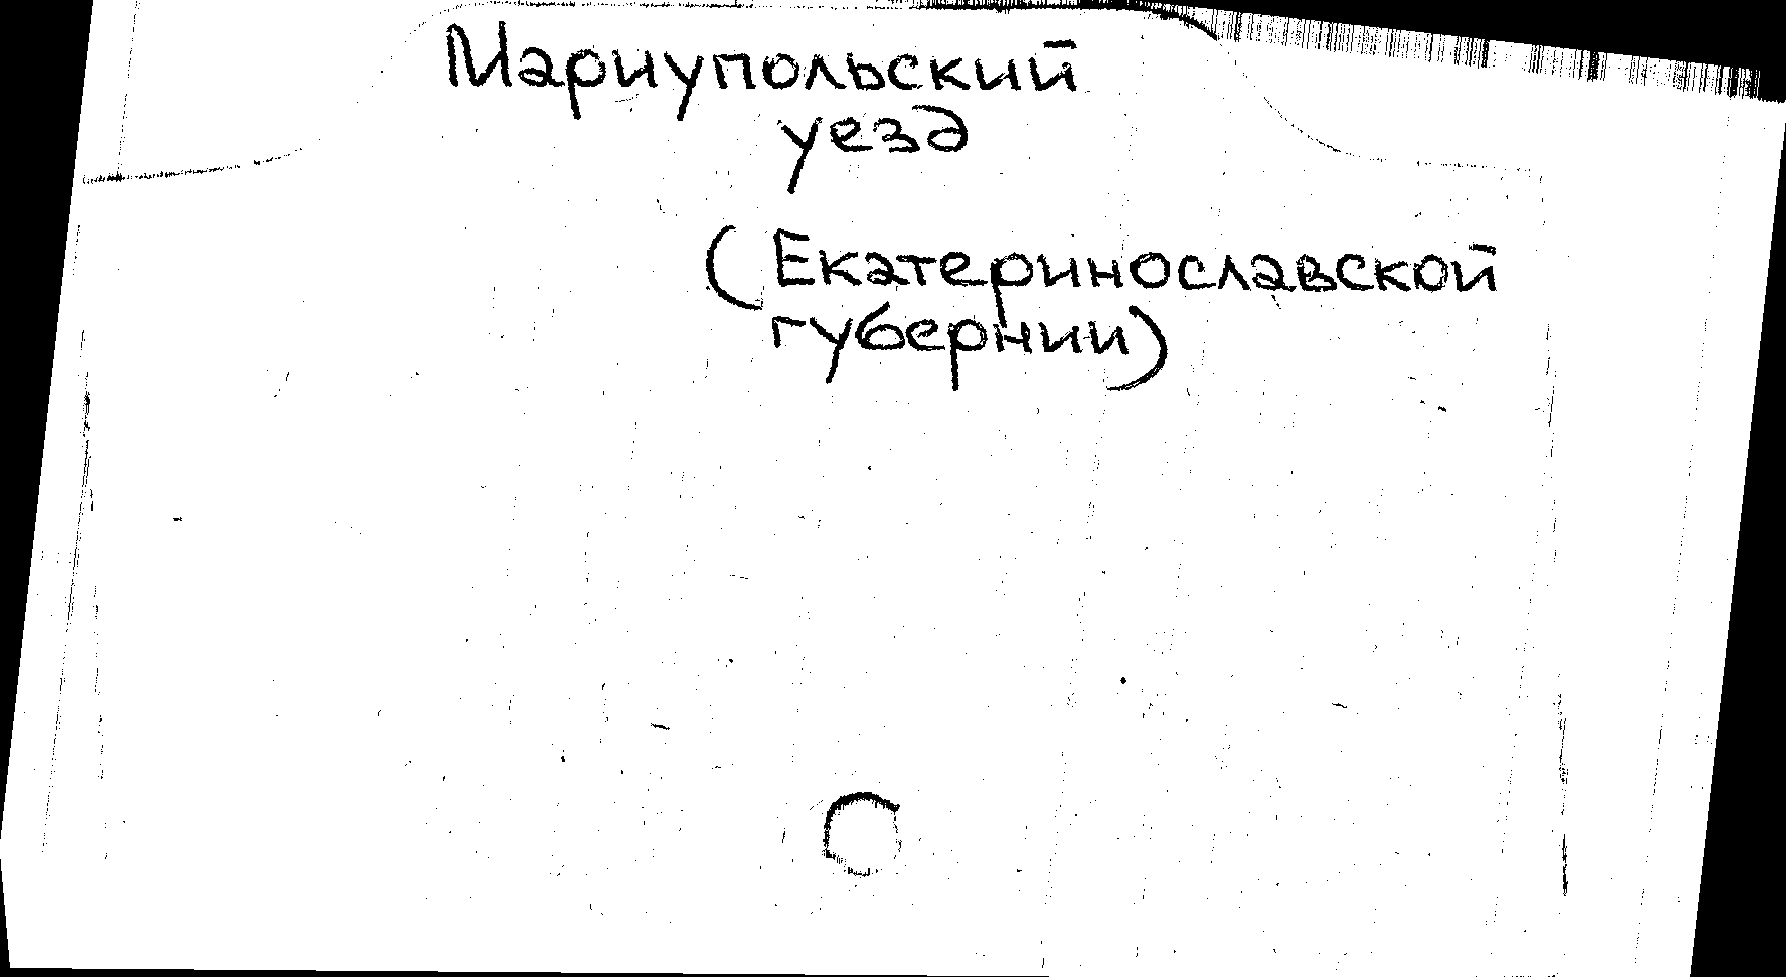 Мариупольский
уезд
(Екатеринославской
губернии)